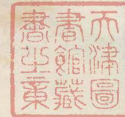 天津圖
書館藏
書之章